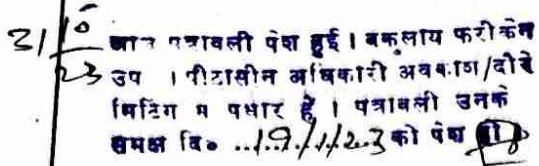 31/10/23 आज पत्रावली पेश हुई । वकुलाय फरीकेन
उप । पीठासीन अधिकारी अवकाश/दौरे
मिटिंग म पधार हैं । पत्रावली उनके
समक्ष दि० ..19/1/23 को पेश हो